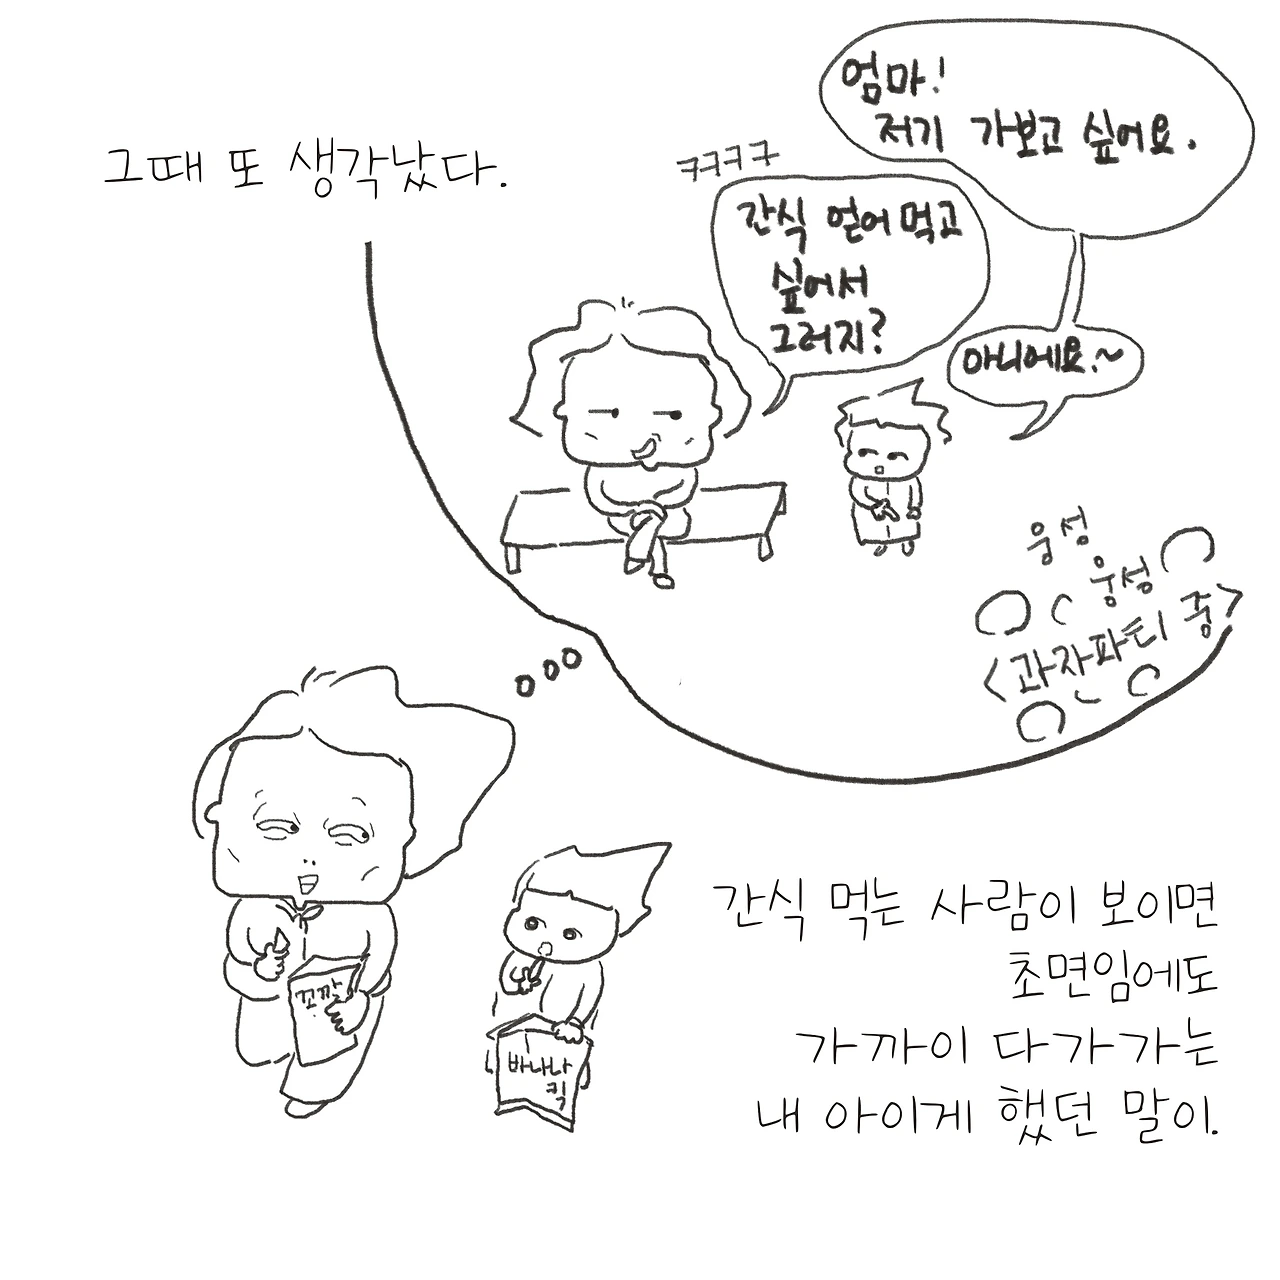 그때 또 생각났다.
엄마!
저기 가보고 싶어요.
ㅋㅋㅋㅋ
간식 얻어먹고
싶어서
그러지?
아니에요.~
웅성
웅성
<과자파티 중>
꼬깔
바나나
킥
간식 먹는 사람이 보이면
초면임에도
가까이 다가가는
내 아이게 했던 말이.